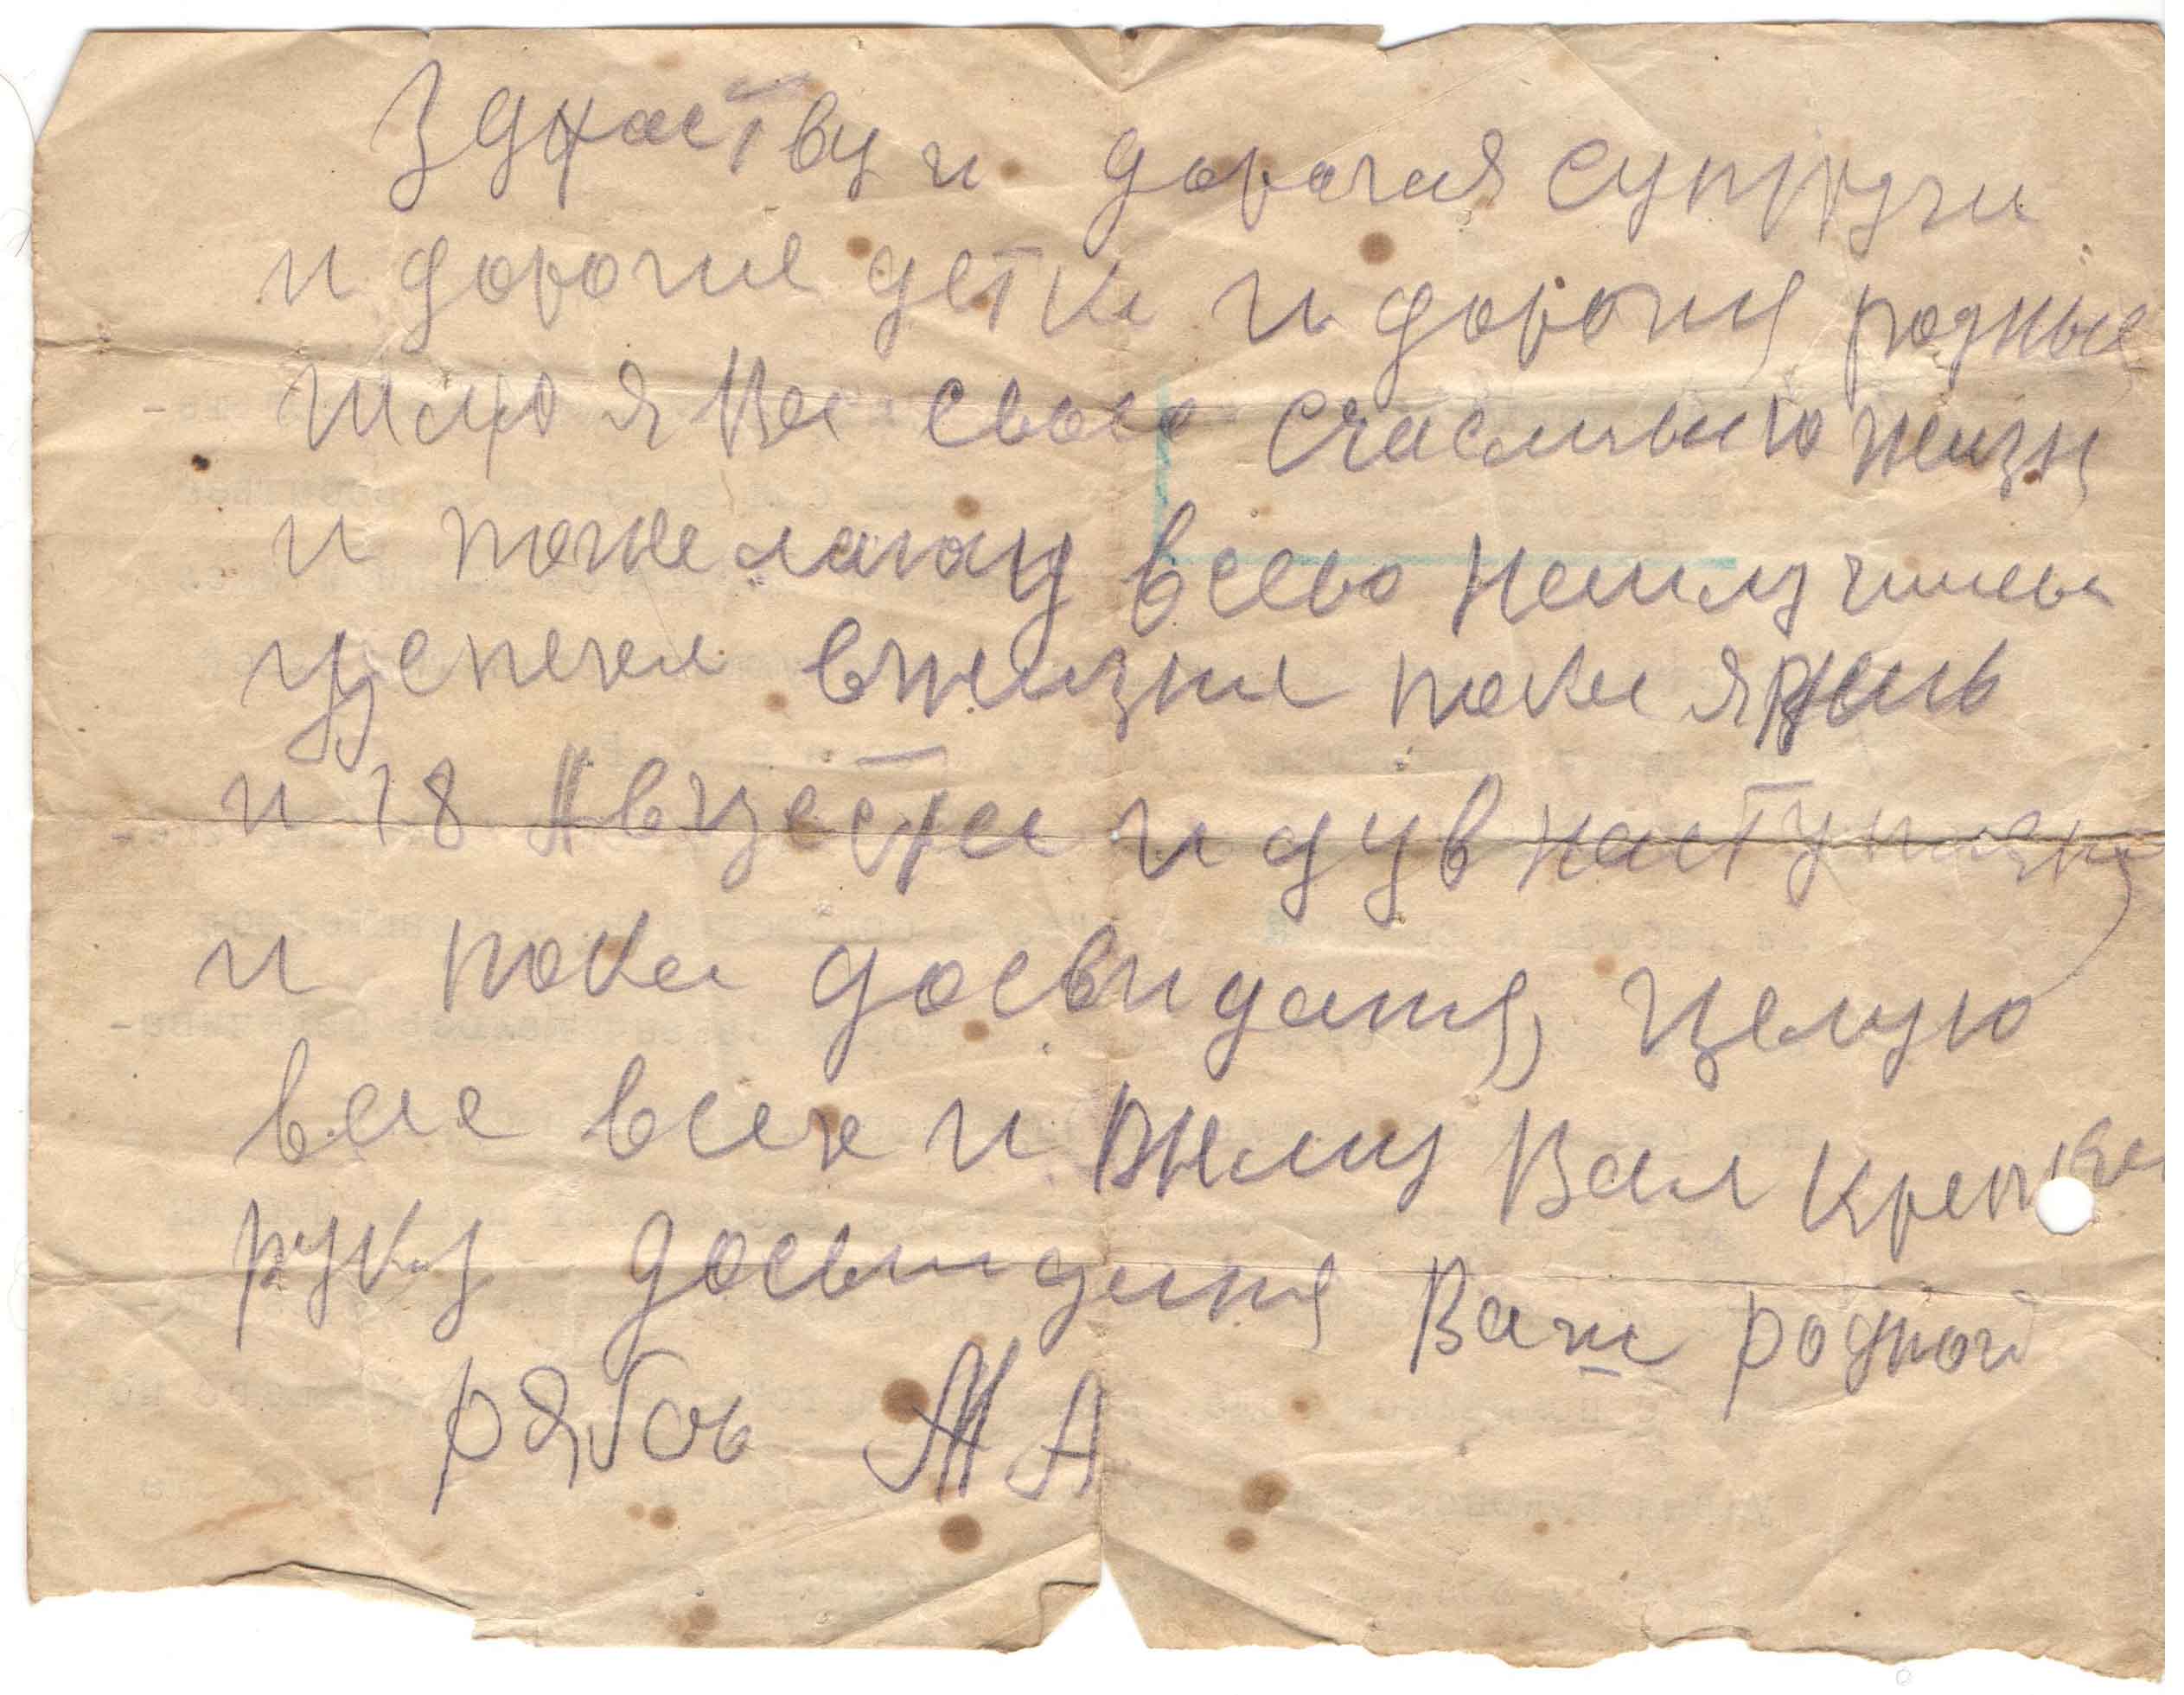 Здраствуи дорогая супруги
и дорогие детки и дорогия родные
шлю я Вас свое счасливыго жизн
и пожелаюу всево неилучшева
успеха вжизни пока я жывь
и 18 Августа иду в наступлени
и пока досвиданя, целую
всее всех и жму Вам крепка
руку досвиданя Ваш родной
рябов М А